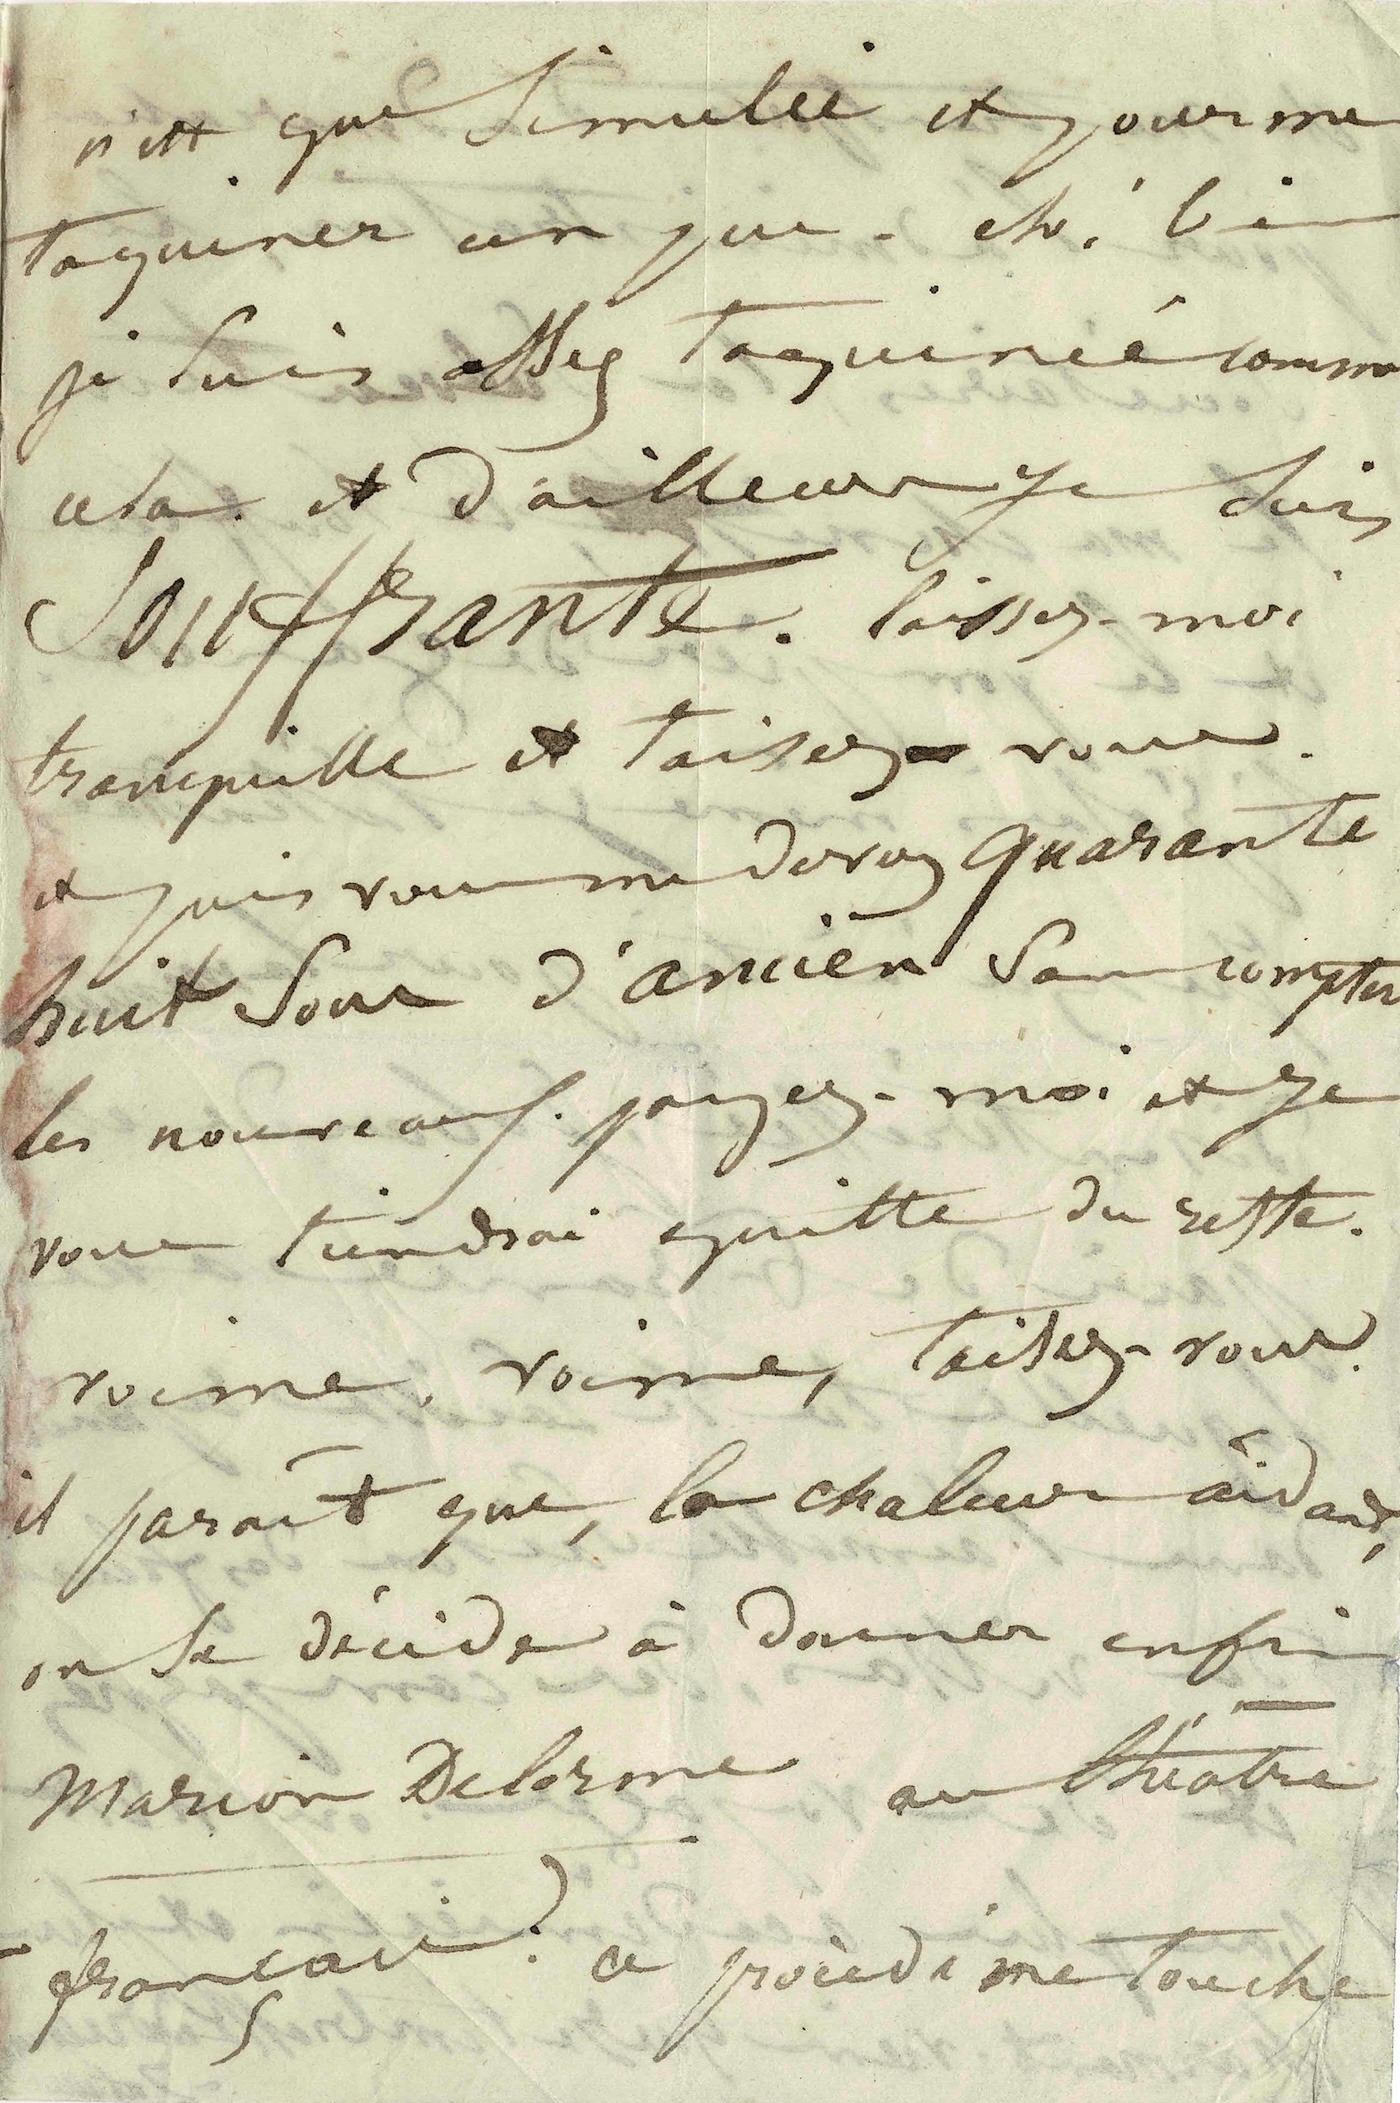 n'est que simulée et pour me
taquiner un peu. eh! bien
je suis assez taquinée comme
cela. et d'ailleurs je suis
Souffrante. laissez-moi
tranquille et taisez-vous.
et puis vous me devez quarante
huit sous d'ancien sans compter
les nouveaux. payez-moi et je
vous tiendrai quitte du reste.
voime, voime, taisez-vous.
il paraît que, la chaleur aidant,
on se décide à donner enfin
Marion Delorme au théâtre
français? ce procédé me touche